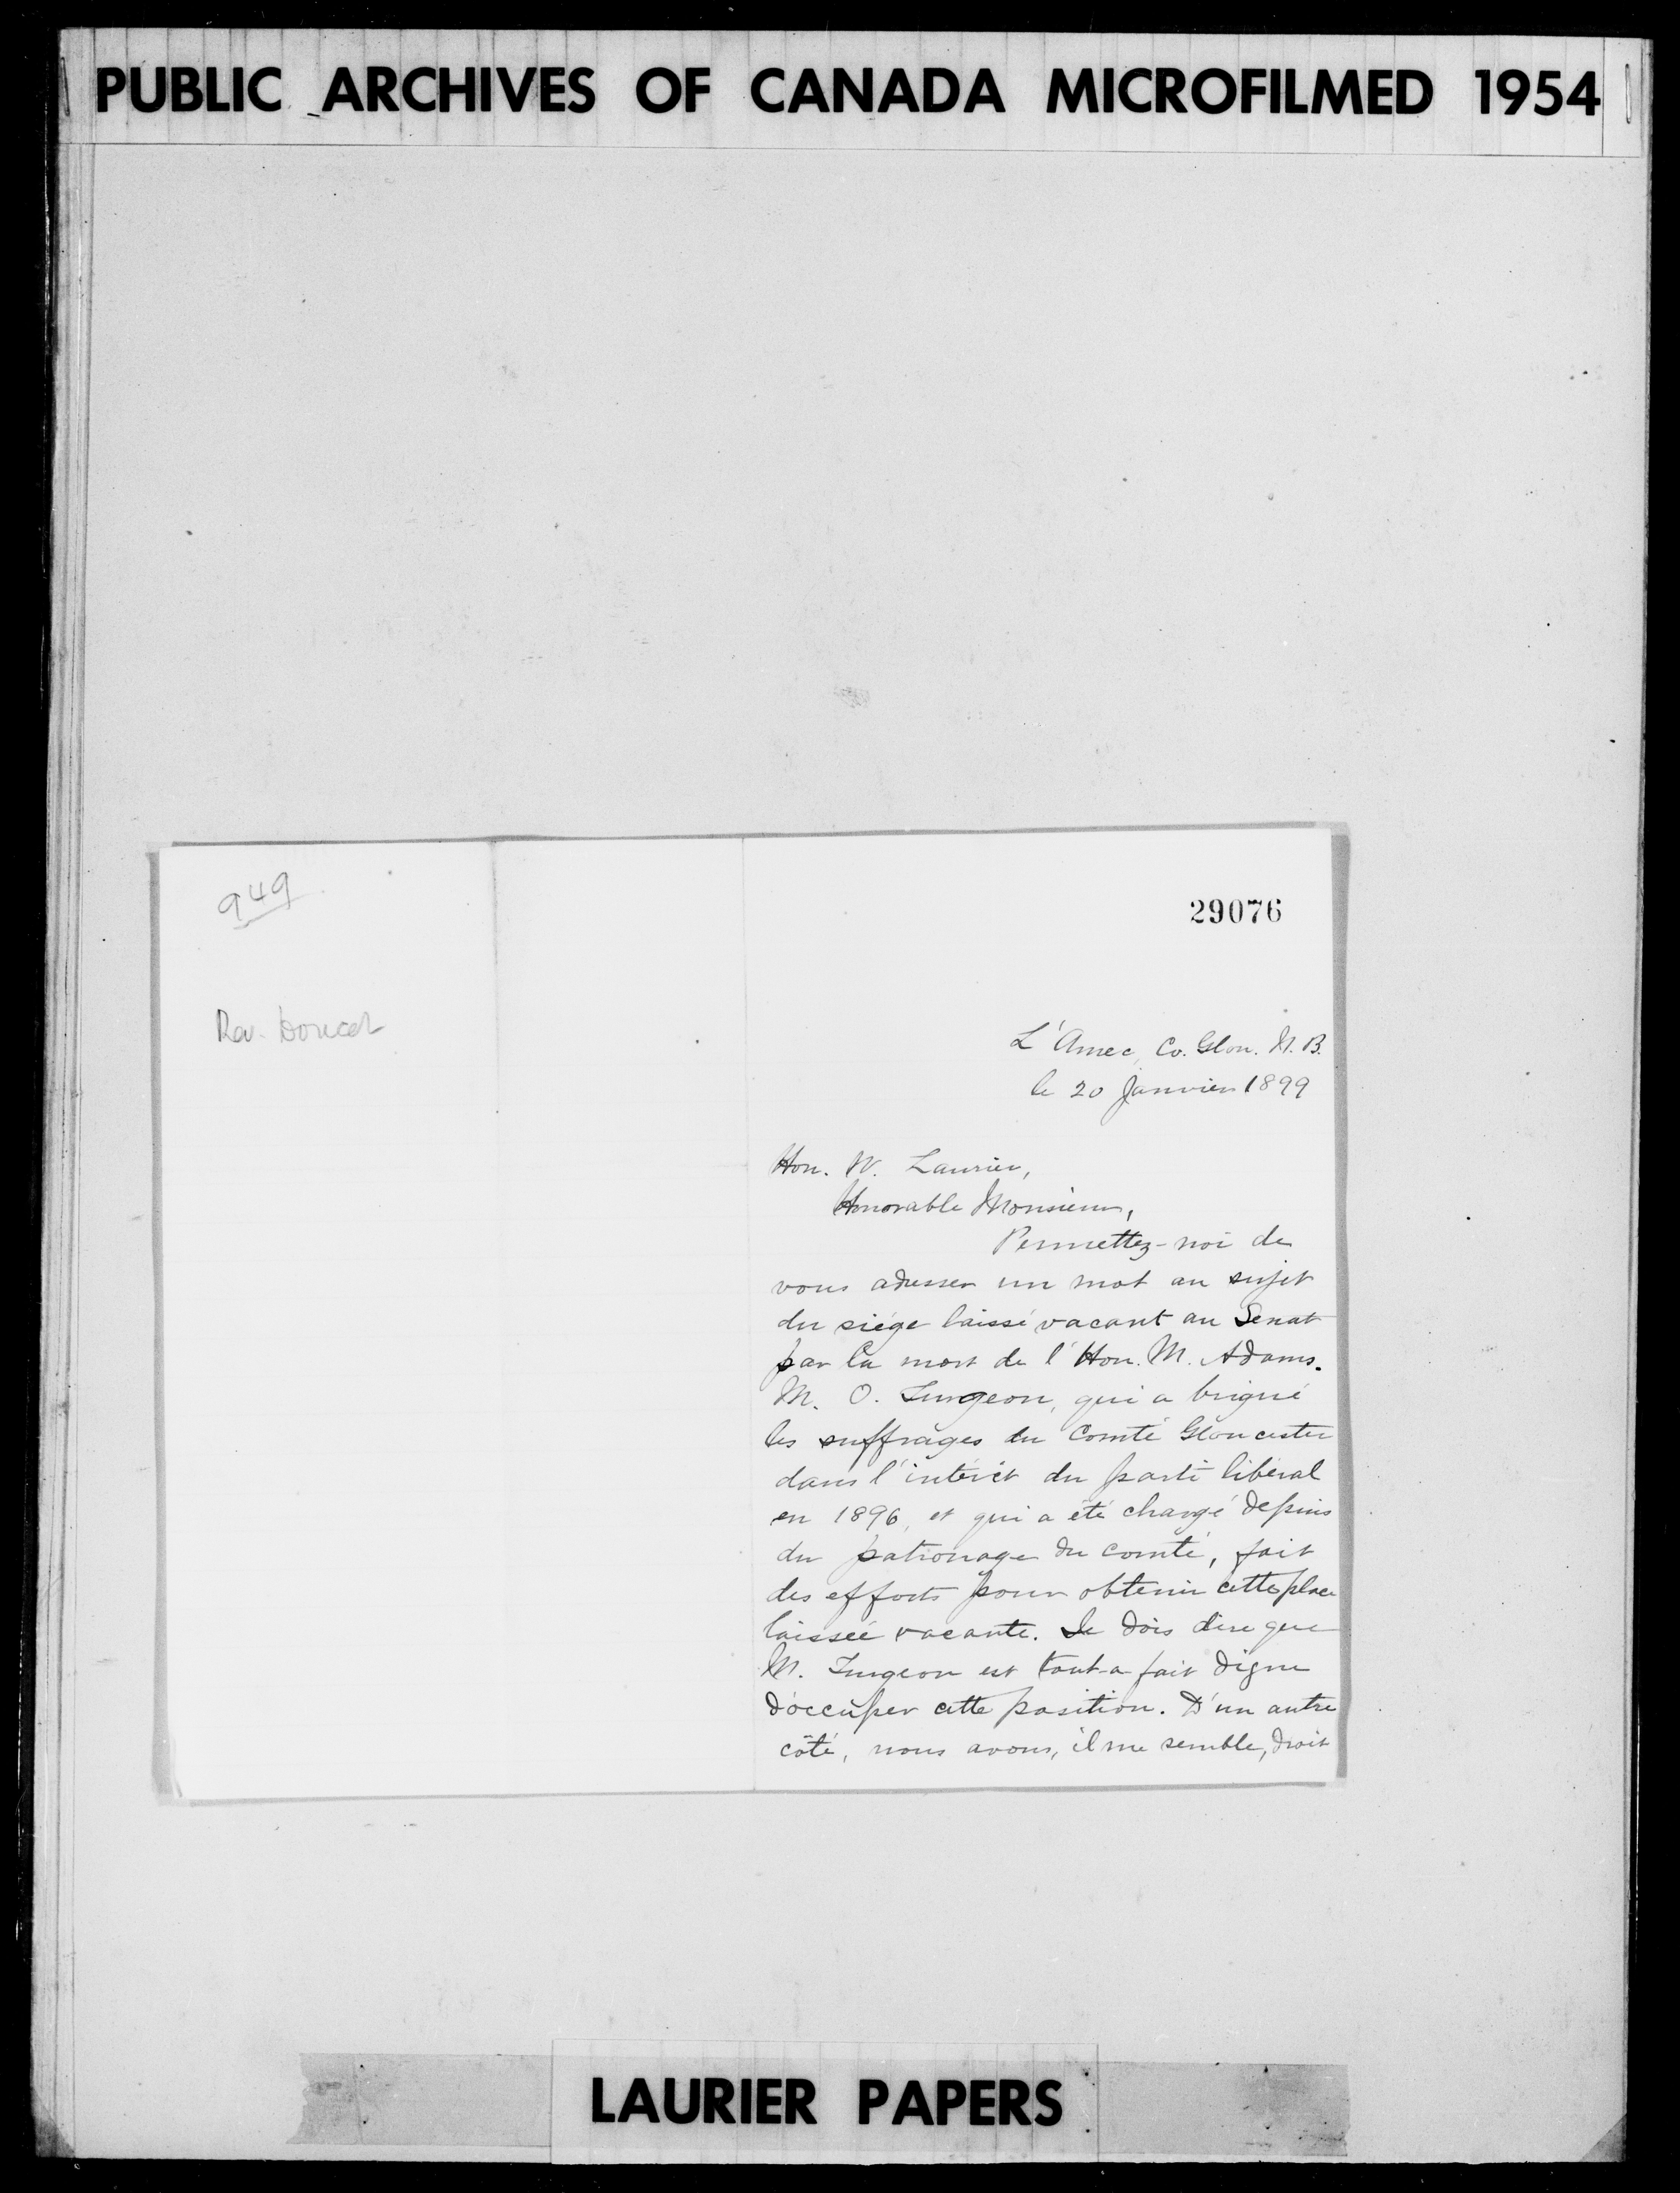 PUBLIC ARCHIVES OF CANADA MICROFILMED 1954
949
Rev. Doucet
29076
L'Amec, Co. Glou. N.B.
le 20 Janvier 1899
Hon. W. Laurier,
Honorable Monsieur,
Permettez-moi de
vous adresser un mot au sujet
du siége laissé vacant au Senat
par la mort de l'Hon. M. Adams.
M. O. Turgeon, qui a brigué
les suffrages du Comté Gloucester
dans l'intérêt du parti libéral
en 1896, et qui a été chargé depuis
du patronage du comté, fait
des efforts pour obtenir cette place
laissée vacante. Je dois dire que
M. Turgeon est tout-a-fait digne
d'occuper cette position. D'un autre
côté, nous avons, il me semble, droit
LAURIER PAPERS